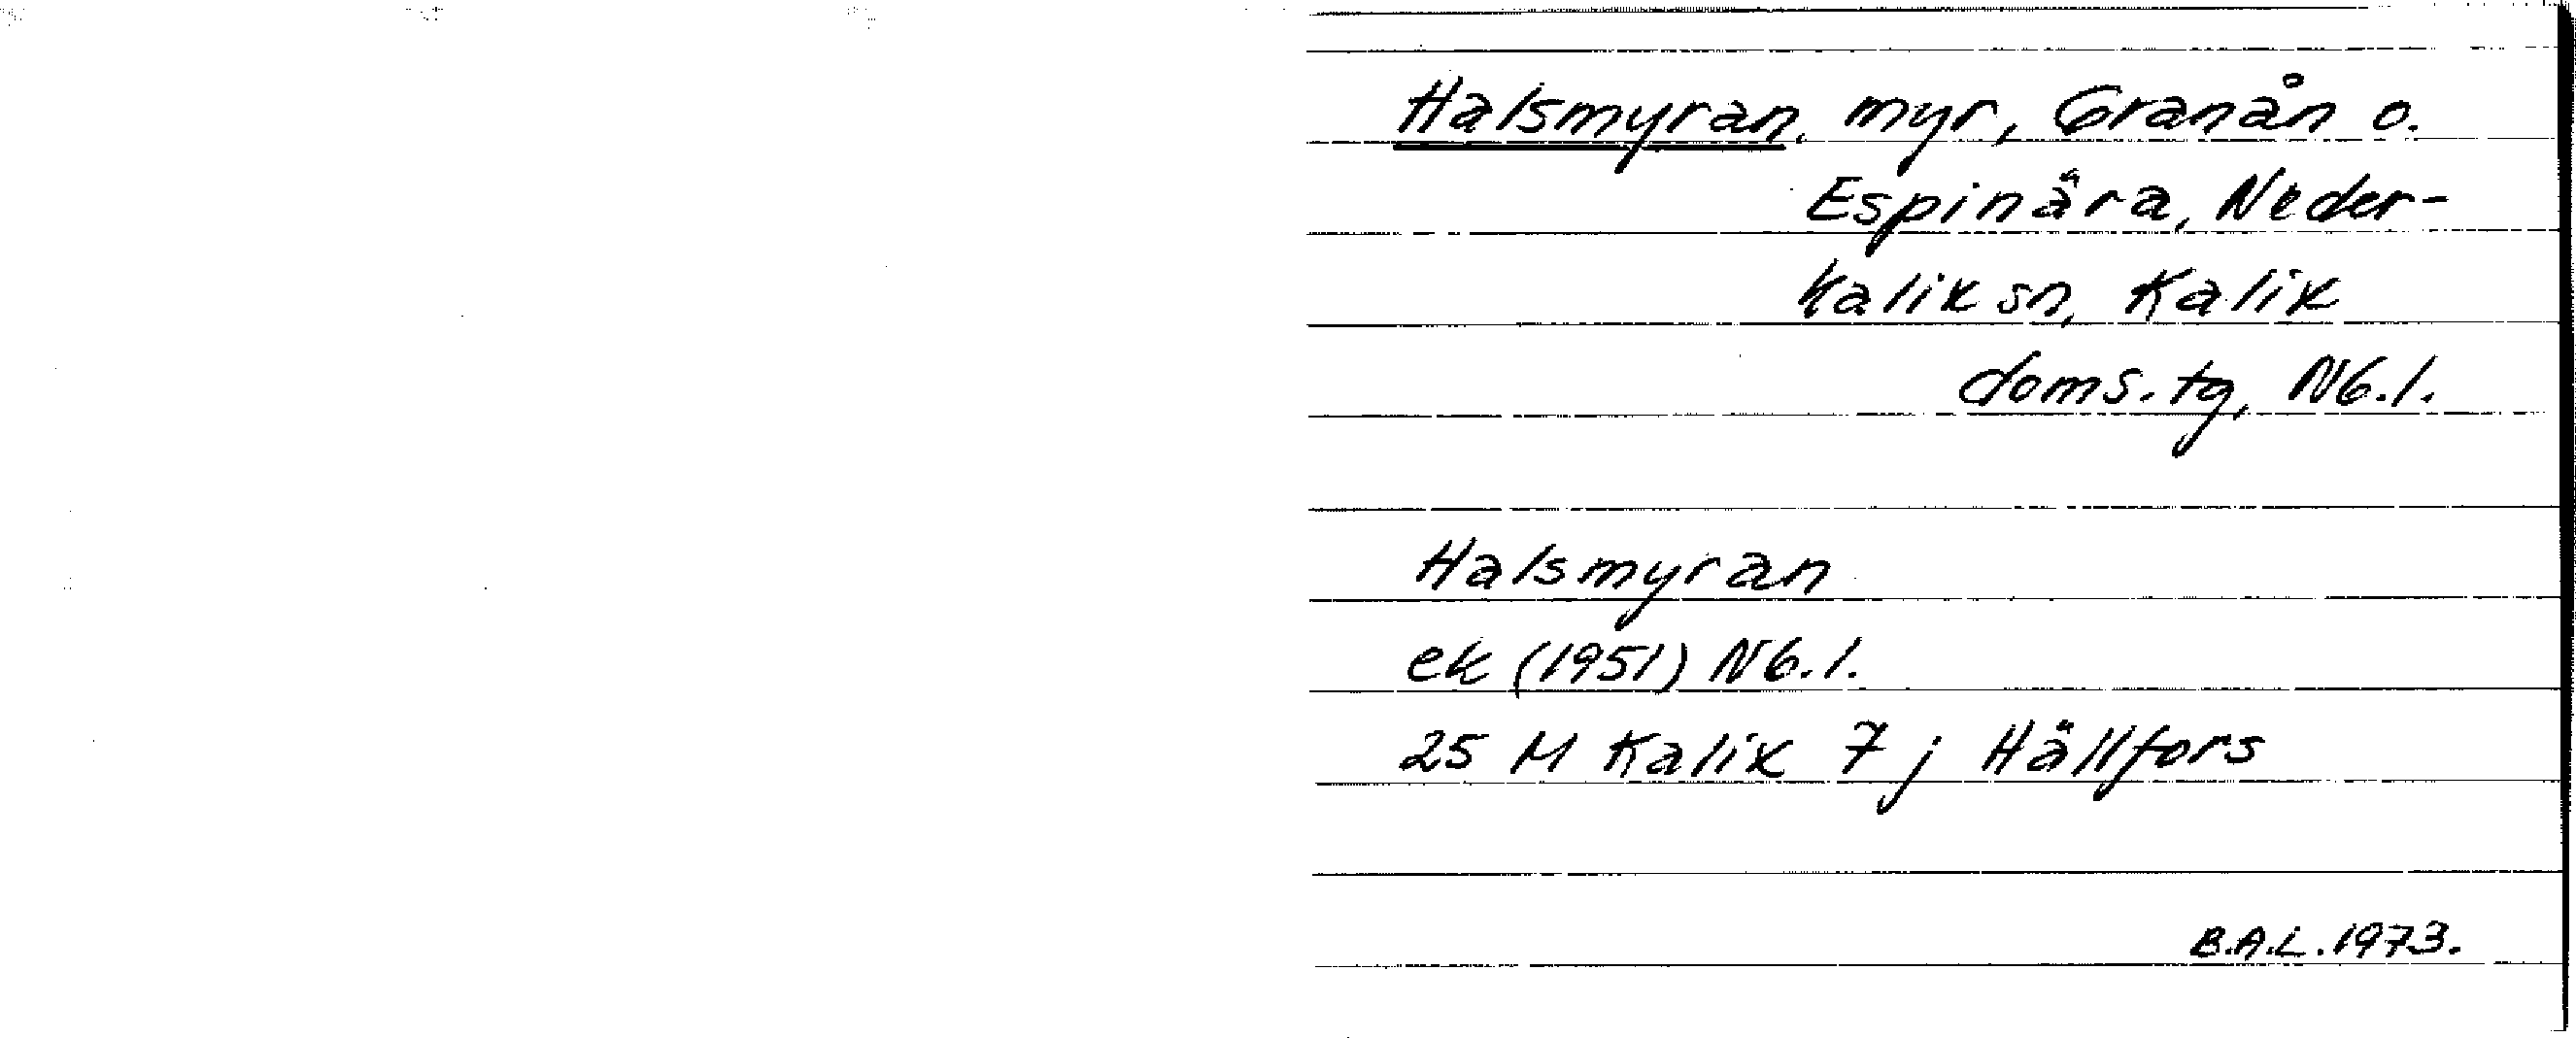 Halsmyran, myr, Granån o.
Espinära, Neder-
kalix sn, Kalix
doms. tg, Nb.l.
Halsmyran
ek (1951) Nb.l.
25 M Kalix 7 j Hällfors
B.A.L. 1973.